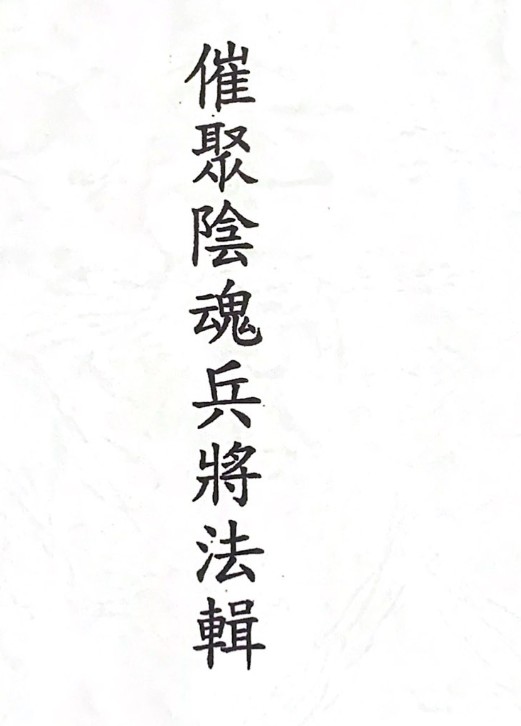 催聚陰魂兵將法輯